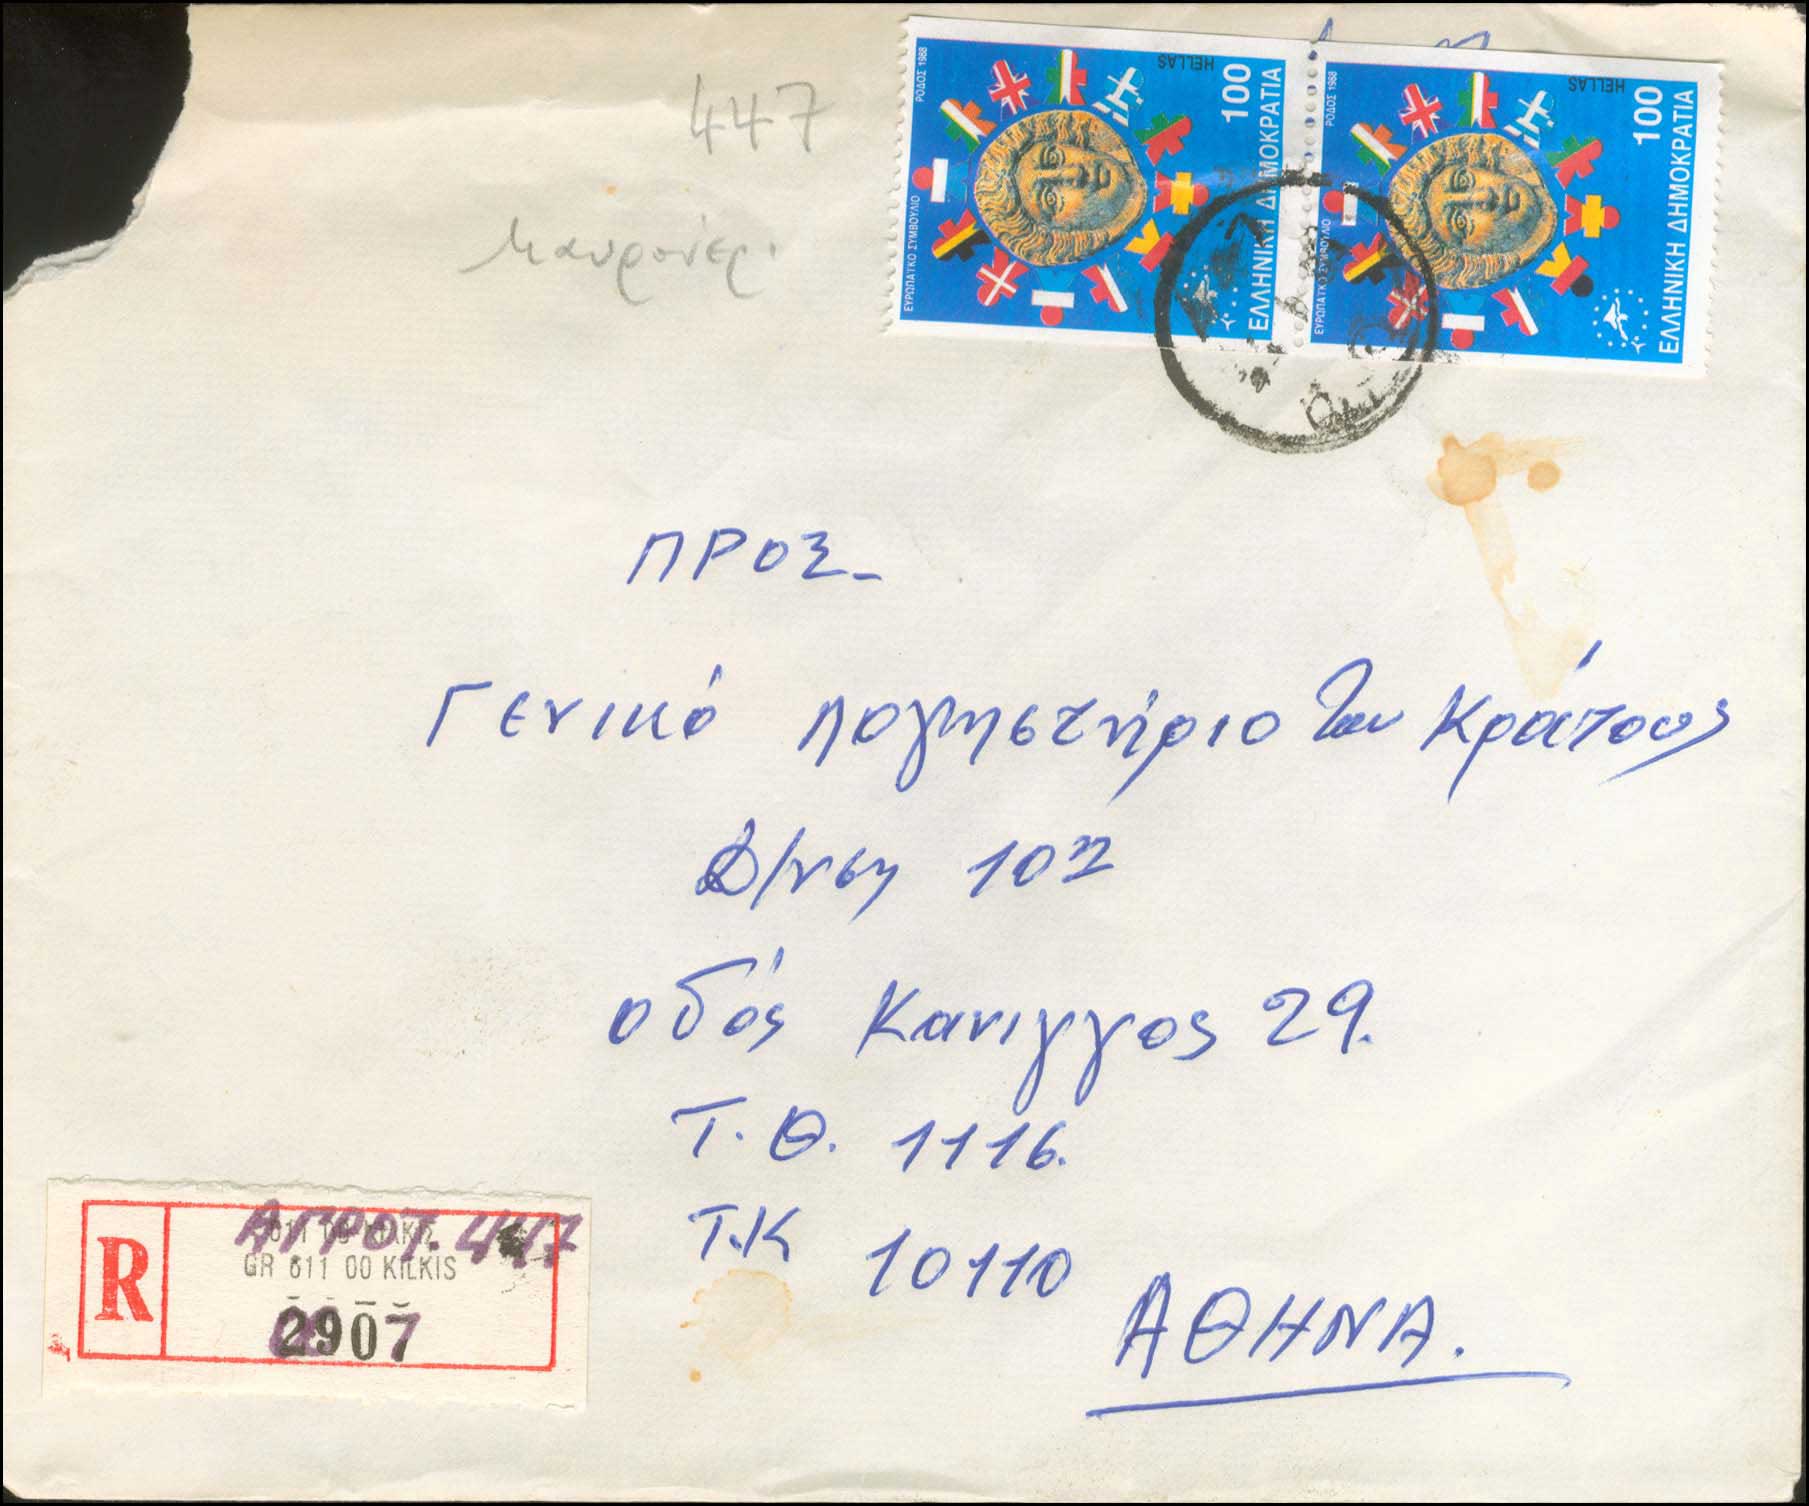 447
Μαυρονέρ.
ΡΟΔΟΣ 1988
HELLAS
100
ΕΥΡΩΠΑΪΚΟ ΣΥΜΒΟΥΛΙΟ
ΕΛΛΗΝΙΚΗ ΔΗΜΟΚΡΑΤΙΑ
ΡΟΔΟΣ 1988
HELLAS
100
ΕΥΡΩΠΑΪΚΟ ΣΥΜΒΟΥΛΙΟ
ΕΛΛΗΝΙΚΗ ΔΗΜΟΚΡΑΤΙΑ
ΠΡΟΣ-
Γενικό Λογηστήριο του Κράτους
Δ/νση 10η
οδός Κανιγγος 29.
Τ.Θ. 1116.
Τ.Κ 10110
ΑΘΗΝΑ.
R
ΑΓΡΟΤ. 447
GR 611 00 KILKIS
2907